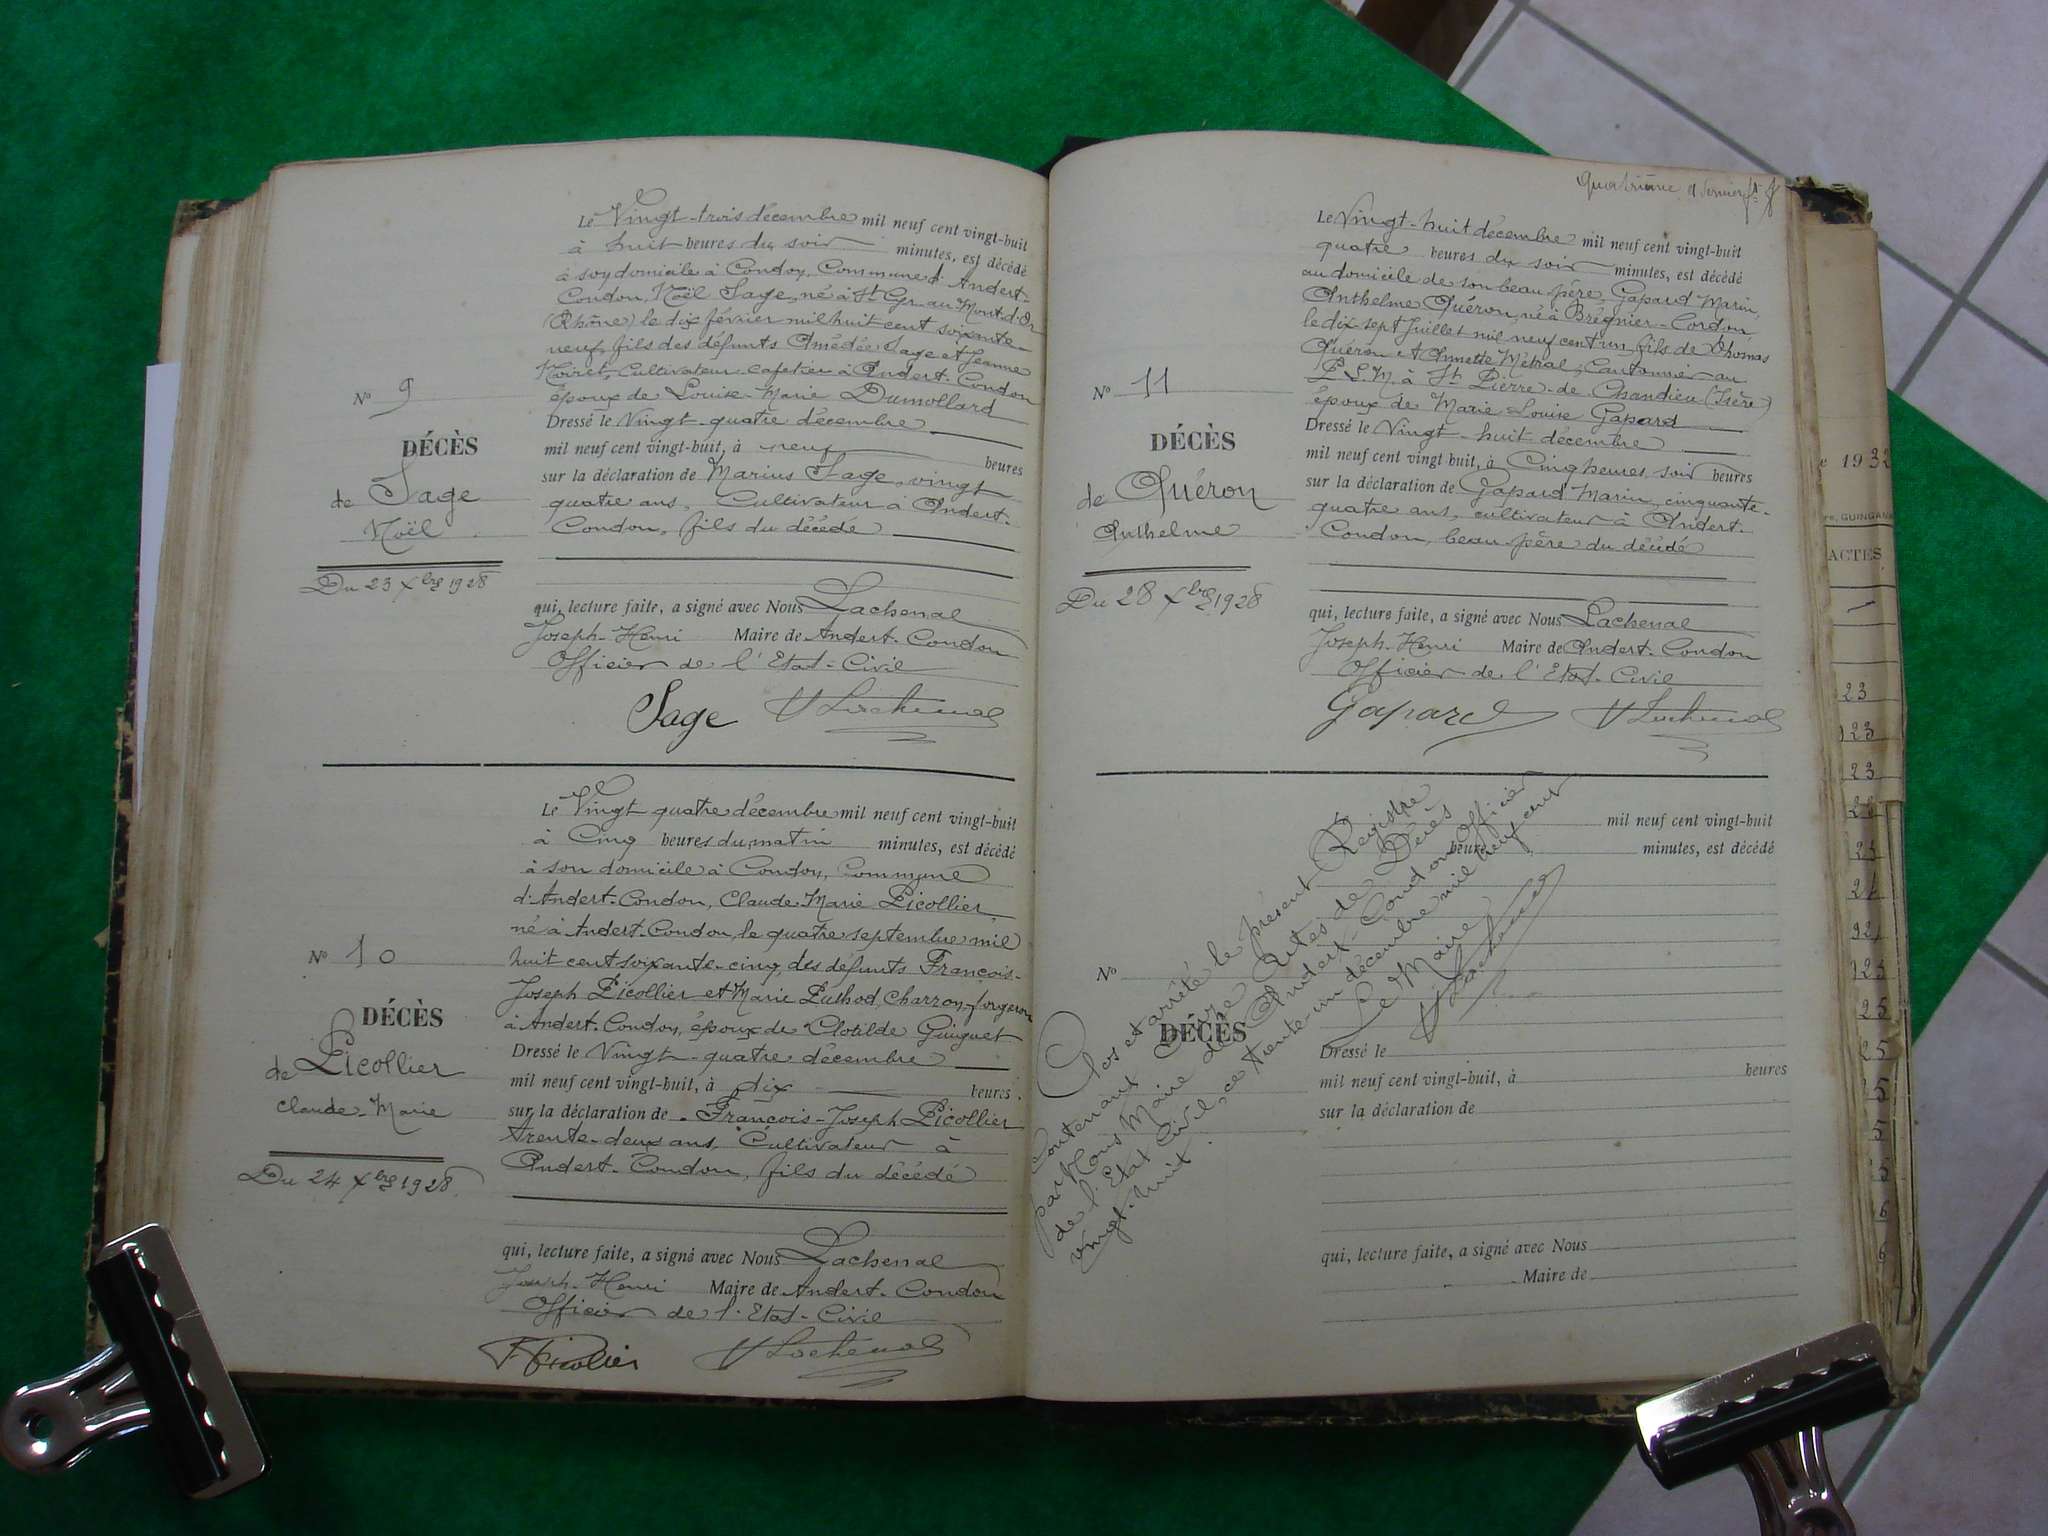 Le Vingt-trois décembre mil neuf cent vingt-huit
à huit heures du soir minutes, est décédé
à son domicile à Condon, Commune d'Andert-
Condon, Noël Sage, né à St Cyr au Mont d'Or
(Rhône) le dix février mil huit cent soixante
neuf, fils des défunts Amédée Sage et Jeanne
Noiret, Cultivateur cafetier à Andert-Condon
époux de Louise-Marie Dumollard
Dressé le Vingt-quatre décembre
mil neuf cent vingt-huit, à neuf heures
sur la déclaration de Marius Sage, vingt
quatre ans, Cultivateur à Andert-
Condon, fils du décédé
qui, lecture faite, a signé avec Nous Lachenal
Joseph-Henri Maire de Andert-Condon
Officier de l'Etat-Civil
Sage Lachenal
No 9
DÉCÈS
de Sage
Noël
Du 23 Xbre 1928
Le Vingt quatre décembre mil neuf cent vingt-huit
à Cinq heures du matin minutes, est décédé
à son domicile à Condon, Commune
d'Andert-Condon, Claude Marie Picollier,
né à Andert-Condon, le quatre septembre mil
huit cent soixante-cinq, des défunts François-
Joseph Picollier et Marie Luthod, Charron-forgeron
à Andert-Condon, époux de Clotilde Guiguet
Dressé le Vingt-quatre décembre
mil neuf cent vingt-huit, à dix heures
sur la déclaration de François-Joseph Picollier
trente-deux ans, Cultivateur à
Andert-Condon, fils du décédé
qui, lecture faite, a signé avec Nous Lachenal
Joseph-Henri Maire de Andert-Condon
Officier de l'Etat-Civil
Picollier Lachenal
No 10
DÉCÈS
de Picollier
Claude-Marie
Du 24 Xbre 1928
Quatrième et dernier
Le Vingt-huit décembre mil neuf cent vingt-huit
quatre heures du soir minutes, est décédé
au domicile de son beau père, Gapard Marin,
Anthelme Quéron, né à Brégnier-Cordon
le dix-sept Juillet mil neuf cent un, fils de Thomas
Quéron et Annette Métral, Cantonnier au
P.L.M. à St Pierre-de-Chandieu (Isère)
époux de Marie Louise Gapard
Dressé le Vingt-huit décembre
mil neuf cent vingt huit, à Cinq heures soir heures
sur la déclaration de Gapard Marin, cinquante-
quatre ans, cultivateur à Andert-
Condon, beau père du décédé
qui, lecture faite, a signé avec Nous Lachenal
Joseph-Henri Maire de Andert-Condon
Officier de l'Etat-Civil
Gapard Lachenal
No 11
DÉCÈS
de Quéron
Anthelme
Du 28 Xbre 1928
mil neuf cent vingt-huit
heures minutes, est décédé
No
DÉCÈS
Dressé le
mil neuf cent vingt-huit, à heures
sur la déclaration de
qui, lecture faite, a signé avec Nous
Maire de
Clos et arrêté le présent Registre
Contenant Onze Actes de Décès
par Nous Maire de Andert-Condon Officier
de l'Etat Civil, ce trente-un décembre mil neuf cent
vingt-huit.
Le Maire
Lachenal
1932
GUINGAMP
ACTES
23
23
23
25
25